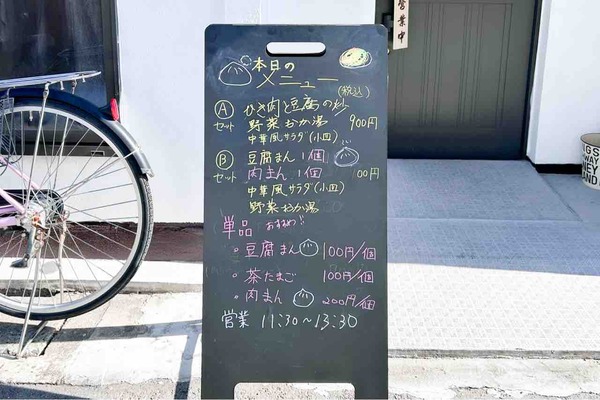 営業中
本日の
メニュー
(税込)
Ⓐ ひき肉と豆腐の炒
セット 野菜おか湯 900円
中華風サラダ(小皿)
Ⓑ 豆腐まん 1個
セット 肉まん 1個 00円
中華風サラダ(小皿)
野菜おか湯
単品 おすすめ!!
・豆腐まん 100円/個
・茶たまご 100円/個
・肉まん 200円/個
営業 11:30~13:30